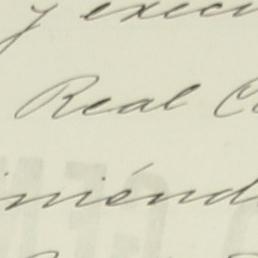 y execu
Real C
imiénd